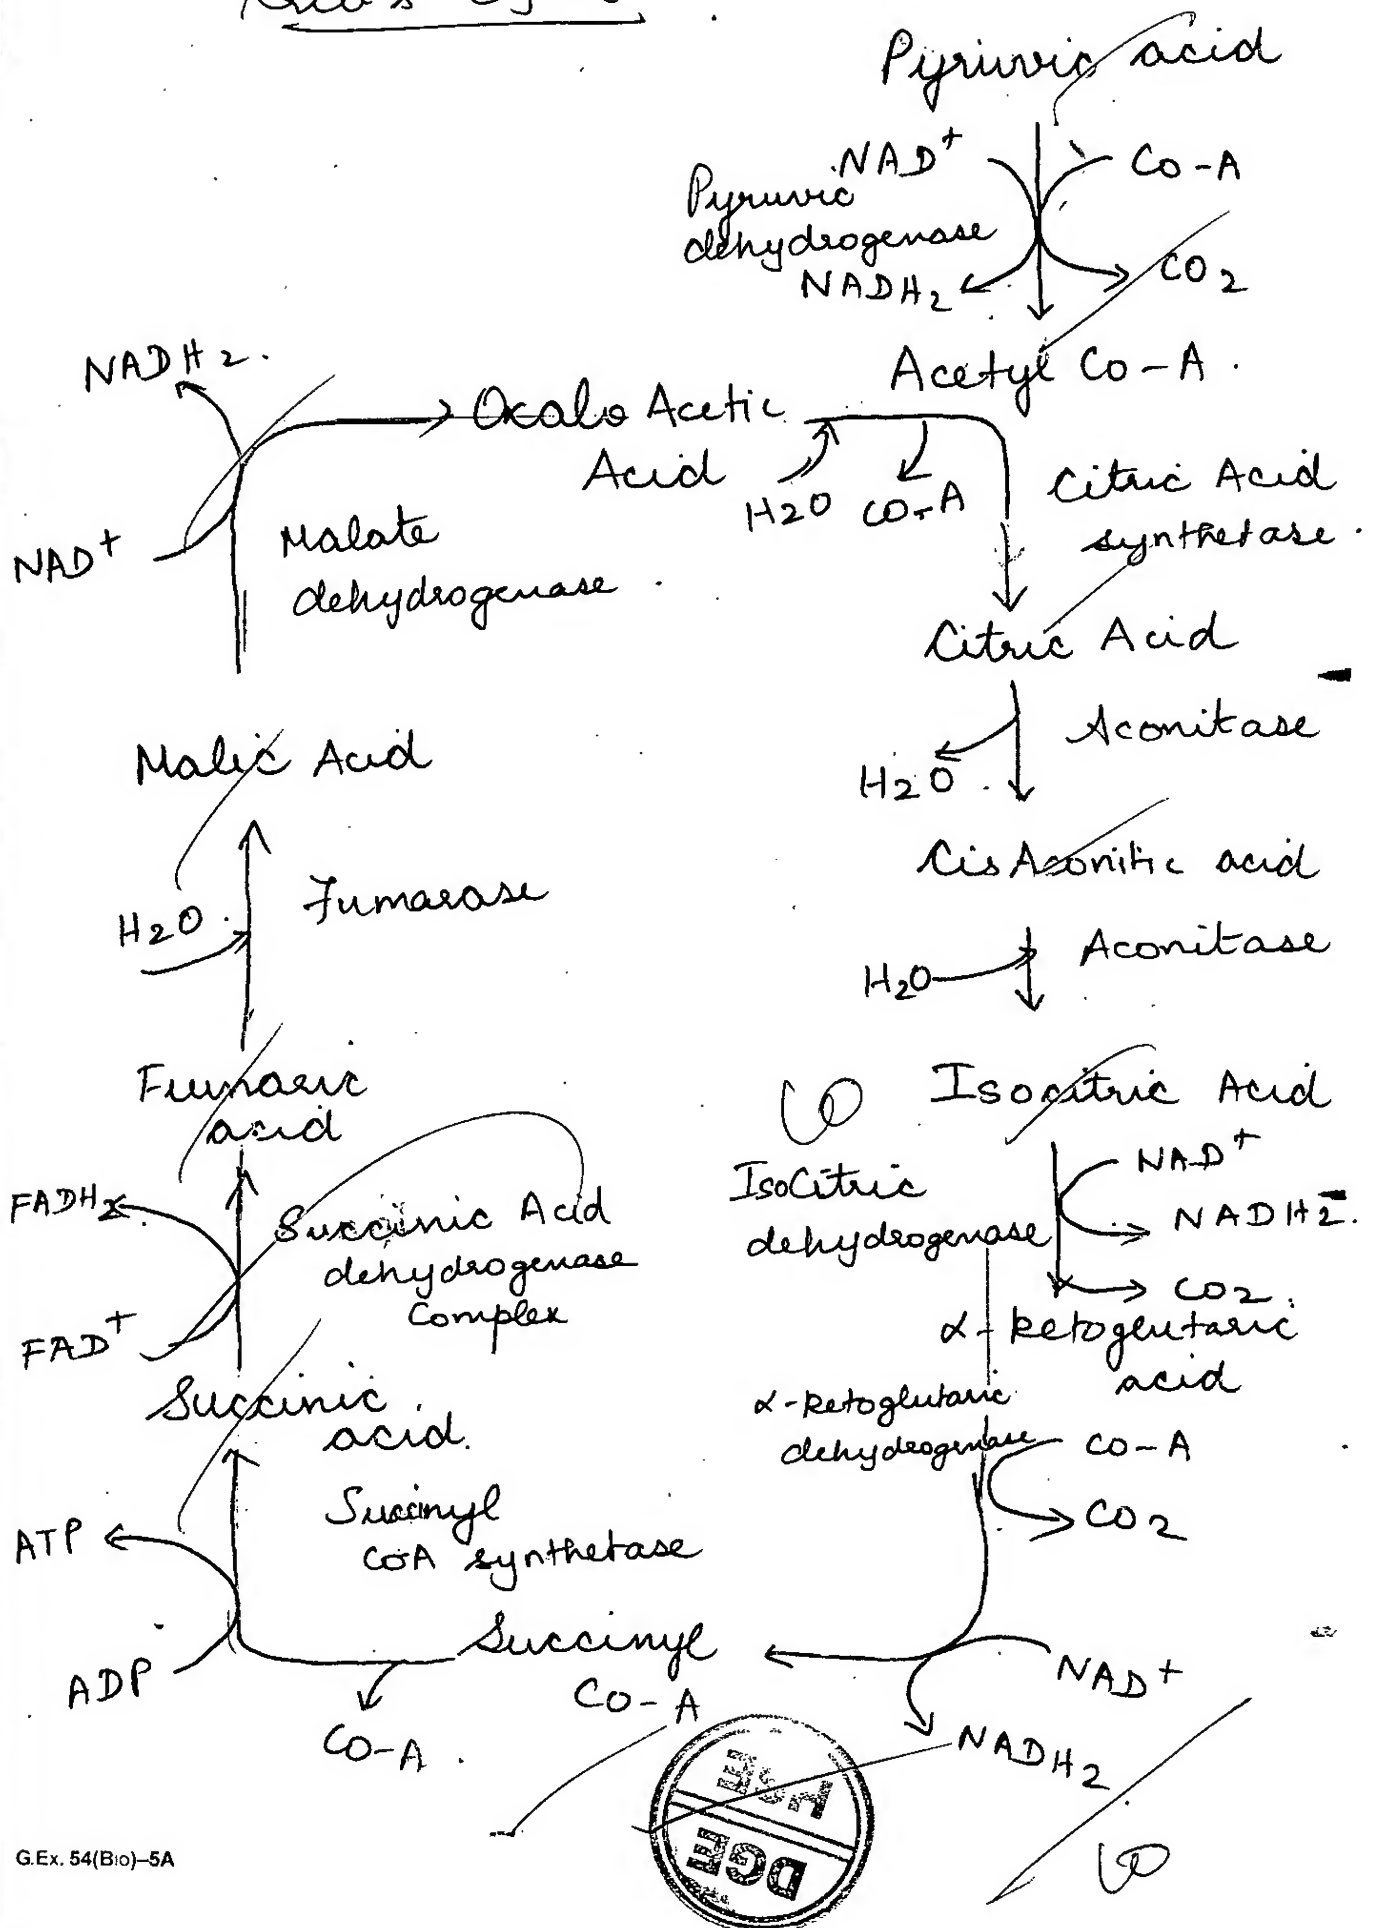 Pyruvic acid
NAD+ Co-A
Pyruvic
dehydrogenase
NADH2 CO2
Acetyl Co-A.
NADH2.
Oxalo Acetic
Acid
H2O CO-A
Citric Acid
synthetase.
NAD+
Malate
dehydrogenase.
Citric Acid
Aconitase
H2O
Malic Acid
Cis Aconitic acid
H2O
Fumarase
Aconitase
H2O
Fumaric
acid
Isocitric Acid
NAD+
IsoCitric
dehydrogenase
NADH2.
CO2.
FADH2
Succinic Acid
dehydrogenase
Complex
FAD+
α-ketoglutaric
acid
Succinic
acid.
α-ketoglutaric
dehydrogenase
CO-A
CO2
ATP
Succinyl
CoA synthetase
ADP
Succinyl
Co-A
CO-A.
NAD+
NADH2
HSE
DGE
G.Ex. 54(Bio)–5A